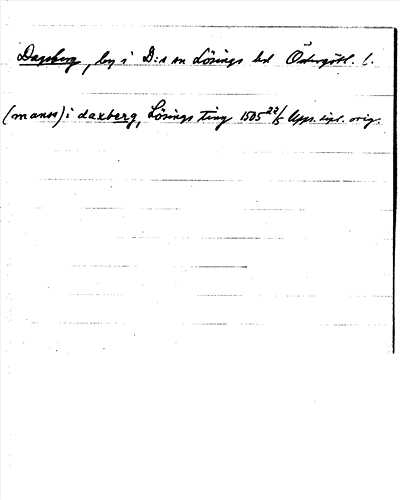 Daxberg, by i D:s sn Lösings hd Östergötl. l.
(manss) i daxberg, Lösings ting 1505 22/5 Upps. dipl. orig.